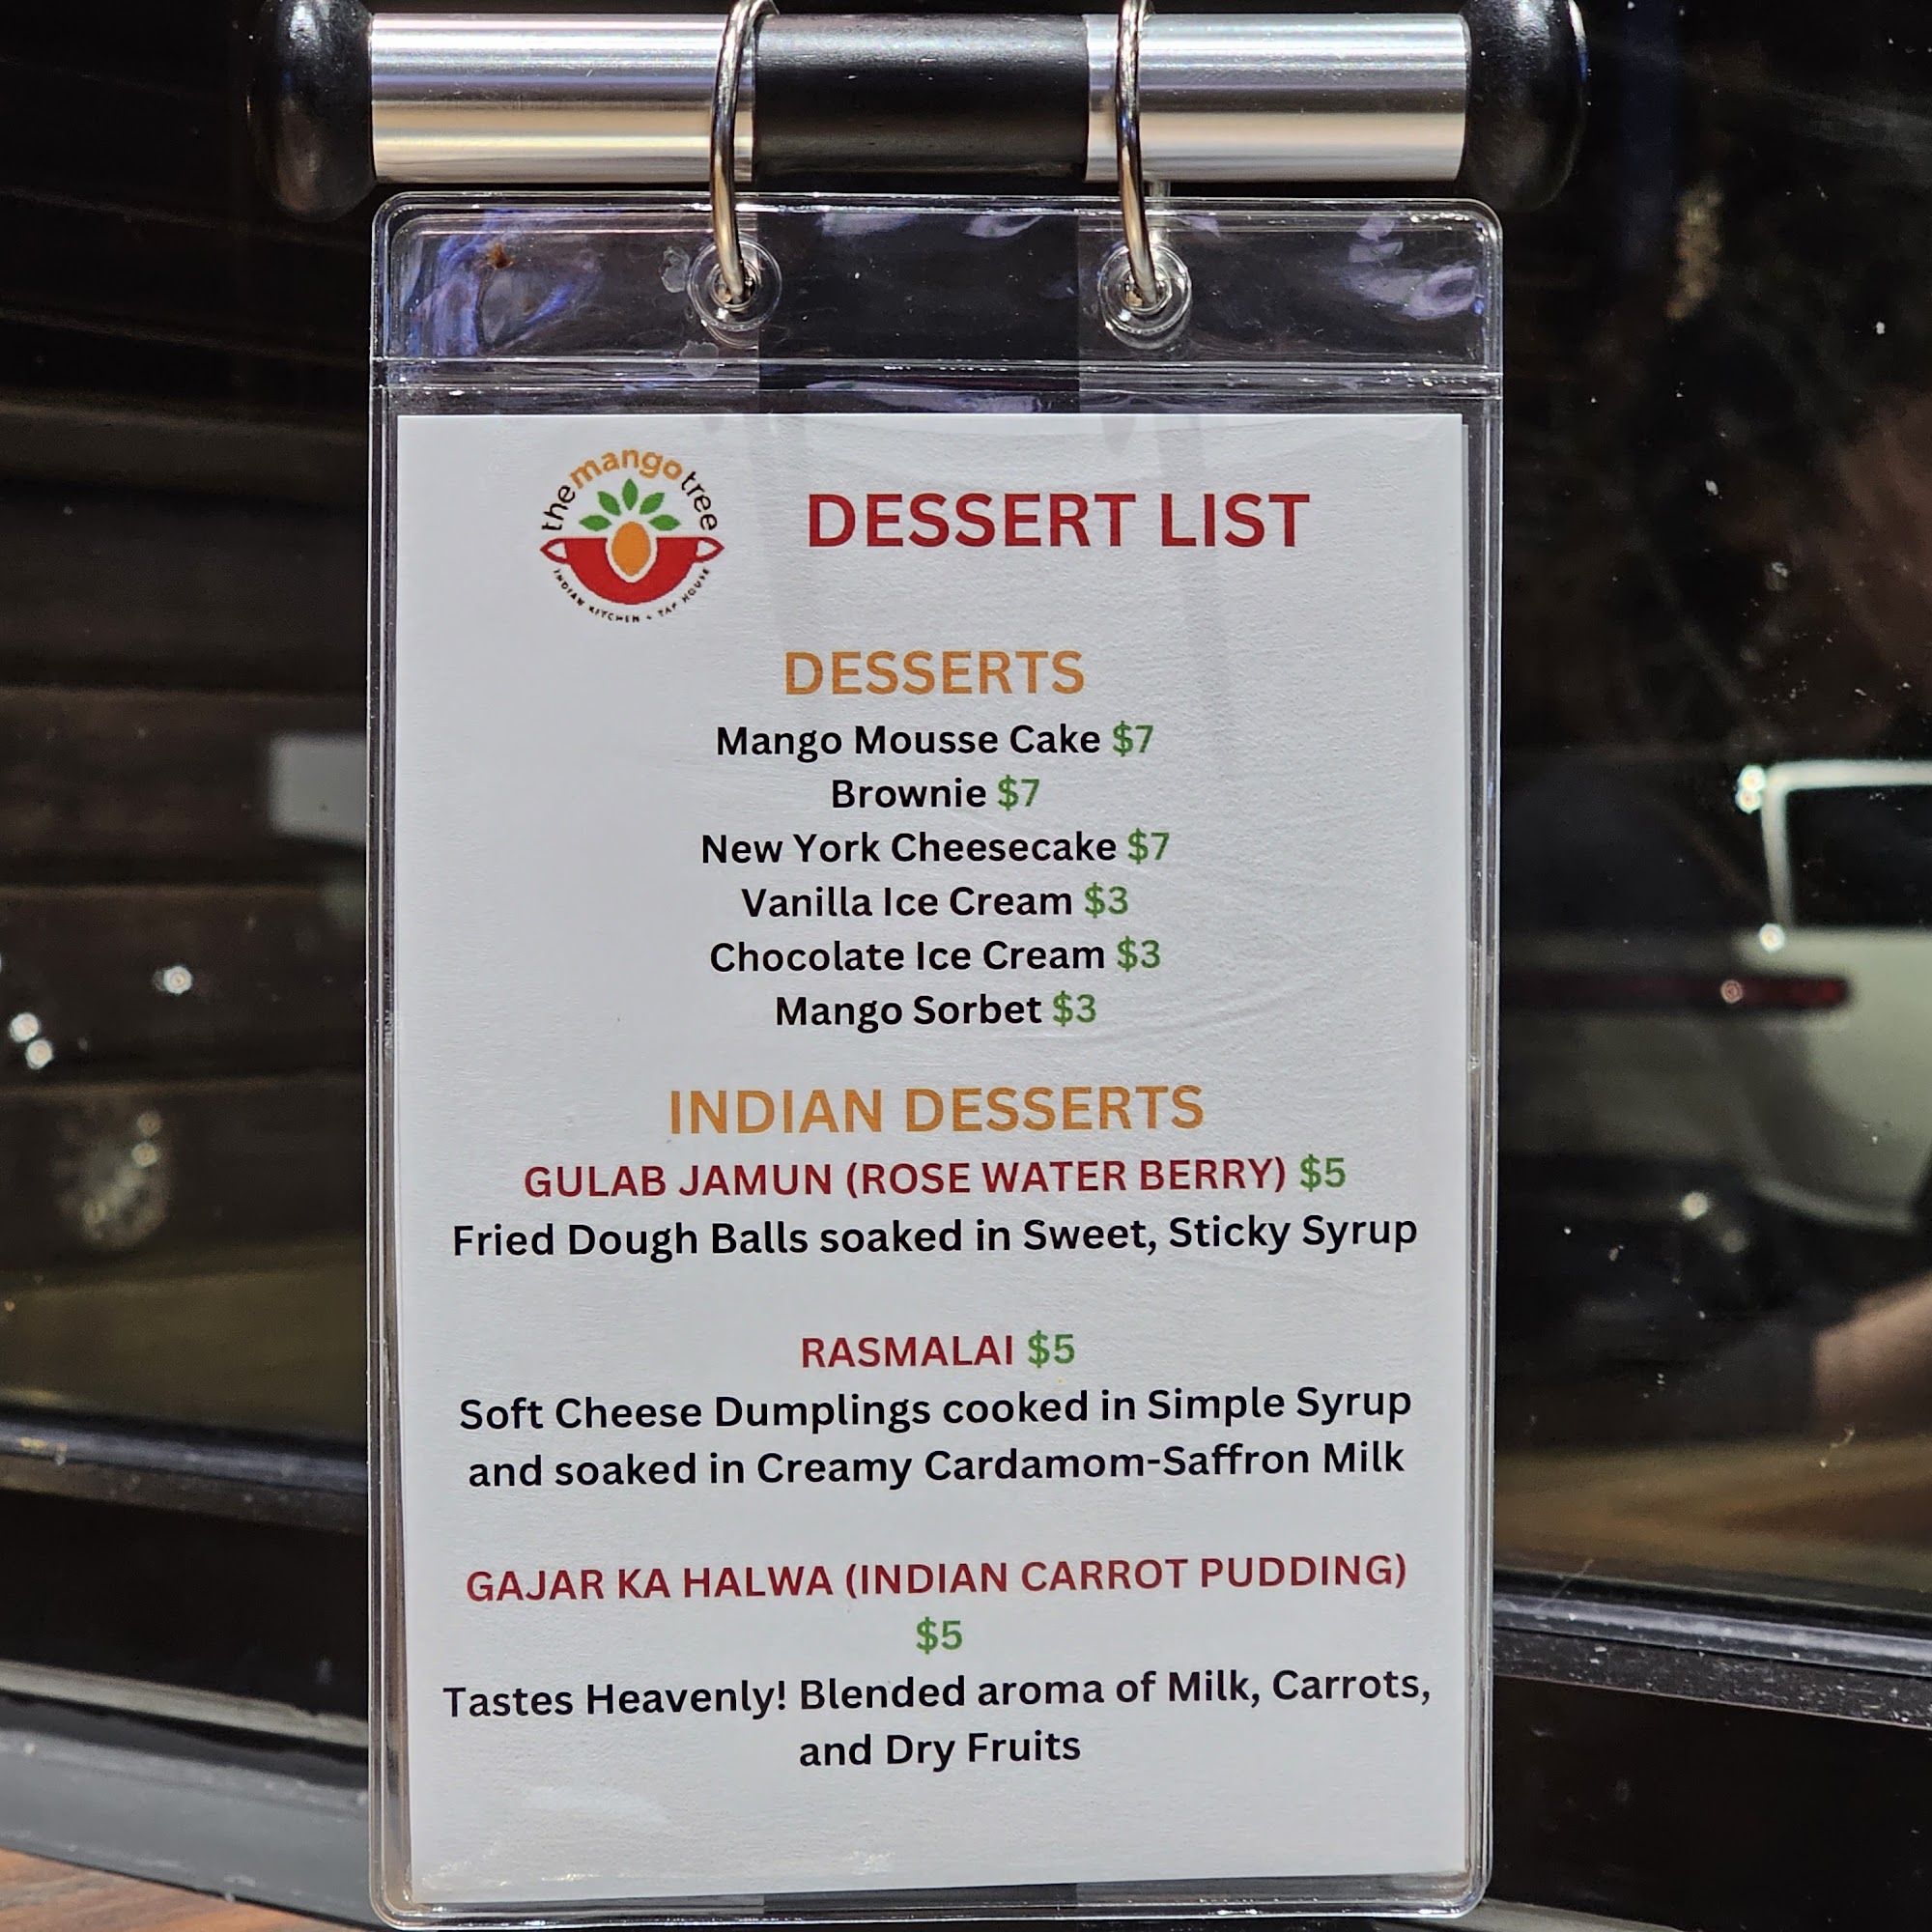 the mango tree
INDIAN KITCHEN + TAP HOUSE
DESSERT LIST
DESSERTS
Mango Mousse Cake $7
Brownie $7
New York Cheesecake $7
Vanilla Ice Cream $3
Chocolate Ice Cream $3
Mango Sorbet $3
INDIAN DESSERTS
GULAB JAMUN (ROSE WATER BERRY) $5
Fried Dough Balls soaked in Sweet, Sticky Syrup
RASMALAI $5
Soft Cheese Dumplings cooked in Simple Syrup
and soaked in Creamy Cardamom-Saffron Milk
GAJAR KA HALWA (INDIAN CARROT PUDDING)
$5
Tastes Heavenly! Blended aroma of Milk, Carrots,
and Dry Fruits